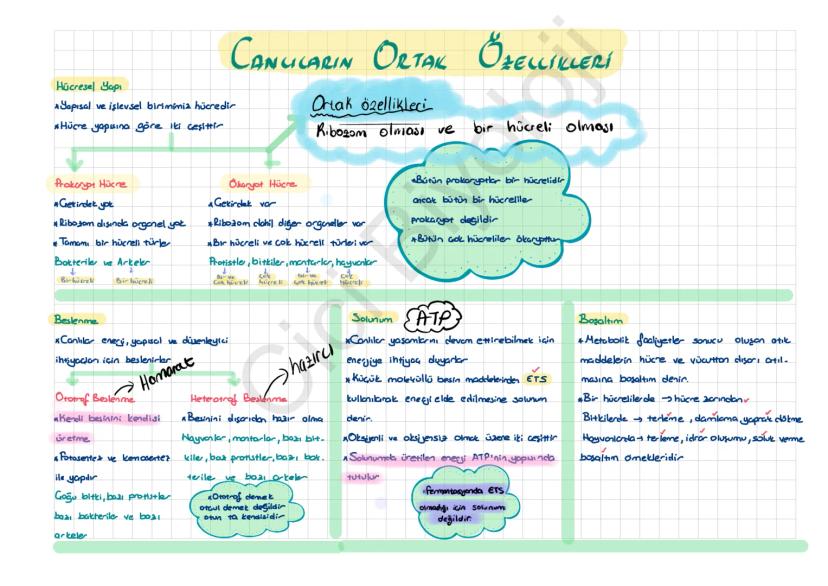 CANLILARIN ORTAK ÖZELLİKLERİ
Hücresel Yapı
*Yapısal ve işlevsel birimimiz hücredir
*Hücre yapısına göre iki çeşittir
Ortak özellikleri
Ribozom olması ve bir hücreli olması
Prokaryot Hücre
*Çekirdek yok
*Ribozom dışında organel yok
*Tamamı bir hücreli türler
Bakteriler ve Arkeler
Bir hücreli
Bir hücreli
Ökaryot Hücre
*Çekirdek var
*Ribozom dahil diğer organeller var
*Bir hücreli ve çok hücreli türleri var
Protistler, bitkiler, mantarlar, hayvanlar
Bir ve çok hücreli
Çok hücreli
Bir ve çok hücreli
Çok hücreli
*Bütün prokaryotlar bir hücrelidir
ancak bütün bir hücreliler
prokaryot değildir
*Bütün çok hücreliler ökaryottur
Beslenme
*Canlılar enerji, yapısal ve düzenleyici
ihtiyaçları için beslenirler
Hamarat
hazırcı
Ototrof Beslenme
*Kendi besinini kendisi
üretme
*Fotosentez ve kemosentez
ile yapılır
Çoğu bitki, bazı protistler
bazı bakteriler ve bazı
arkeler
Heterotrof Beslenme
*Besinini dışarıdan hazır alma
Hayvanlar, mantarlar, bazı bit-
kiler, bazı protistler, bazı bak-
teriler ve bazı arkeler
*Ototrof demek
otçul demek değildir
otun ta kendisidir
Solunum
ATP
*Canlılar yaşamlarını devam ettirebilmek için
enerjiye ihtiyaç duyarlar
*Küçük moleküllü besin maddelerinden ETS
kullanılarak enerji elde edilmesine solunum
denir.
*Oksijenli ve oksijensiz olmak üzere iki çeşittir
*Solunumda üretilen enerji ATP'nin yapısında
tutulur
*Fermantasyonda ETS
olmadığı için solunum
değildir.
Boşaltım
*Metabolik faaliyetler sonucu oluşan atık
maddelerin hücre ve vücuttan dışarı atıl-
masına boşaltım denir.
*Bir hücrelilerde → hücre zarından
Bitkilerde → terleme, damlama yaprak dökme
Hayvanlarda → terleme, idrar oluşumu, soluk verme
boşaltım örnekleridir
Cici Biyoloji